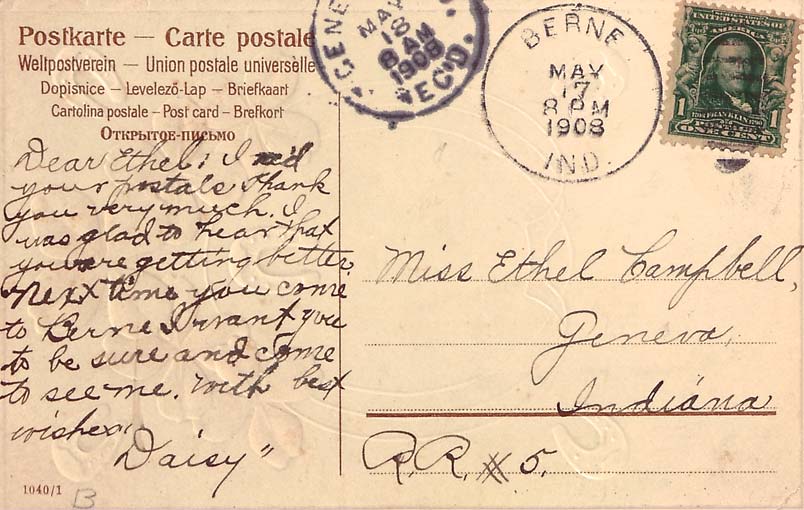 Postkarte — Carte postale
Weltpostverein — Union postale universelle
Dopisnice — Levelező-Lap — Briefkaart
Cartolina postale — Post card — Brefkort
Открытое-письмо
Dear Ethel; I rec'd
your postals Thank
you very much. I
was glad to hear that
you are getting better
Next time you come
to Berne I want you
to be sure and come
to see me. With best
wishes,
"Daisy"
1040/1
B
MAY
18
8 AM
1908
REC'D.
BERNE
MAY
17
8 PM
1908
IND.
UNITED STATES OF
AMERICA
1 1
FRANKLIN
ONE CENT
Miss Ethel Campbell,
Geneva,
Indiana
R.R. # 5.